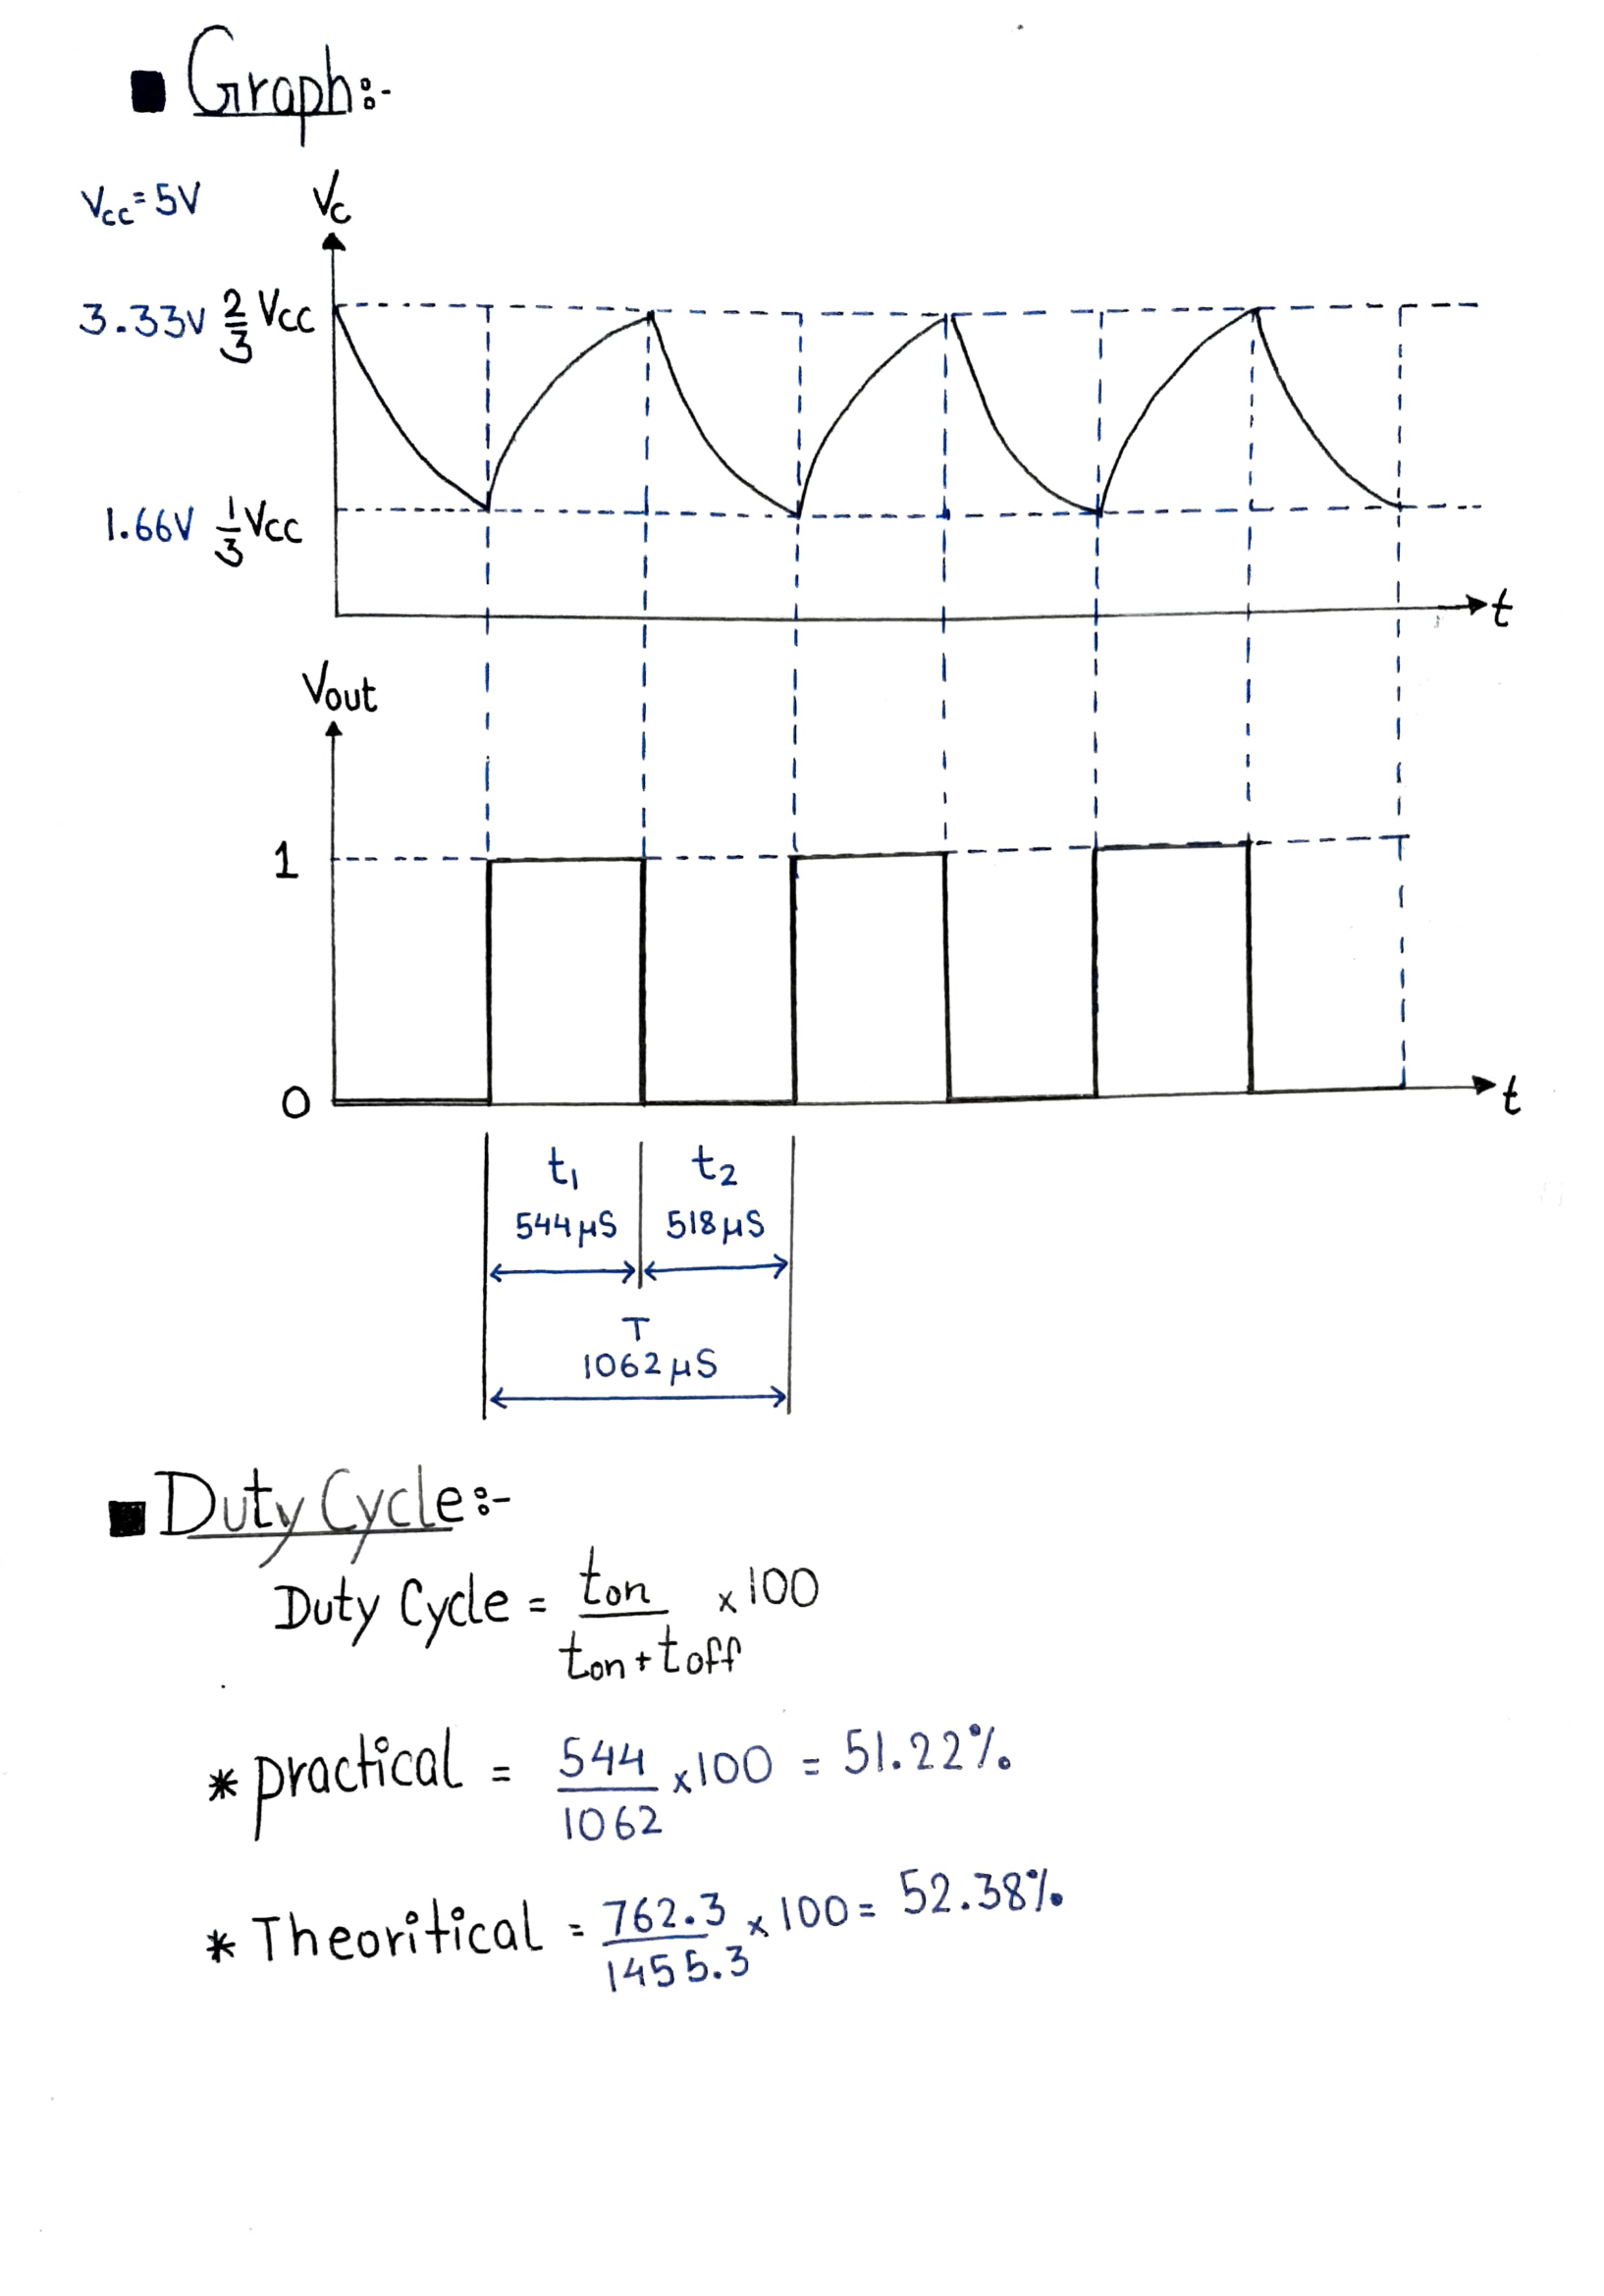 ■ Graph:-
Vcc = 5V
Vc
3.33V 2/3 Vcc
1.66V 1/3 Vcc
t
Vout
1
0
t
t1 t2
544 μS 518 μS
T
1062 μS
■ Duty Cycle:-
Duty Cycle = ton / ton + toff x 100
* practical = 544 / 1062 x 100 = 51.22%
* Theoritical = 762.3 / 1455.3 x 100 = 52.38%